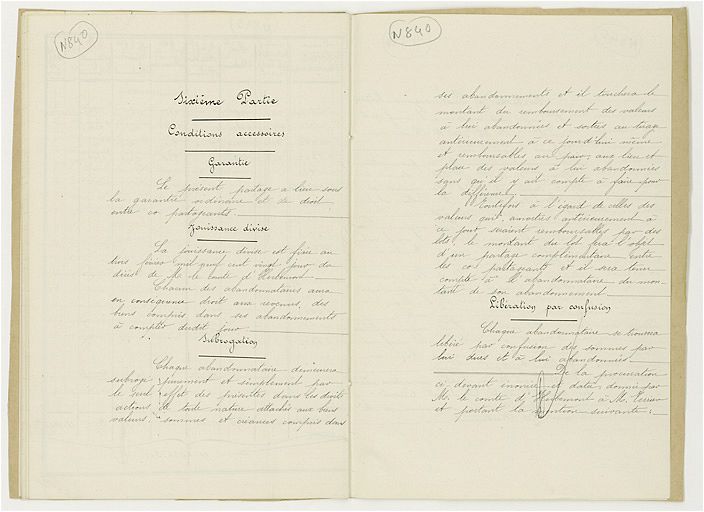 N840
Sixième Partie
Conditions accessoires
Garantie
Le présent partage a lieu sous
la garantie ordinaire et de droit
entre co partageants.
Jouissance divise
La jouissance divise est fixée au
trois février mil neuf cent vingt jour du
décès de Mr le comte d'
Chacun des abandonnataires aura
en conséquence droit aux revenus des
biens compris dans ses abandonnements
à compter dudit jour
Subrogation
Chaque abandonnataire demeurera
subrogé purement et simplement par
le seul effet des présentes dans les droits
actions de toute nature attachés aux biens
valeurs, sommes et créances compris dans
N840
ses abandonnements et il touchera le
montant du remboursement des valeurs
à lui abandonnées et sorties au tirage
antérieurement à ce jourd'hui même
et remboursables au pair, aux lieu et
place des valeurs à lui abandonnées
sans qu'il y ait compte à faire pour
la différence.
Toutefois à l'égard de celles des
valeurs qui, amorties antérieurement à
ce jour seraient remboursables par des
lots, le montant du lot fera l'objet
d'un partage complémentaire entre
les co partageants et il sera tenu
compte à l'abandonnataire du mon-
tant de son abandonnement.
Libération par confusion
Chaque abandonnataire se trouvera
libéré par confusion des sommes par
lui dues et à lui abandonnées.
De la procuration
ci devant énoncée et datée, donnée par
M. le comte d' à M.
et portant la mention suivante: